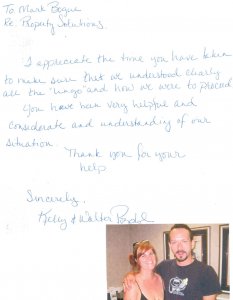 To Mark Bogue
Re: Property Solutions.
I appreciate the time you have taken
to make sure that we understood clearly
all the "lingo" and how we were to proceed.
You have been very helpful and
considerate and understanding of our
situation.
Thank you for your
help
Sincerely,
Kelly & Walter